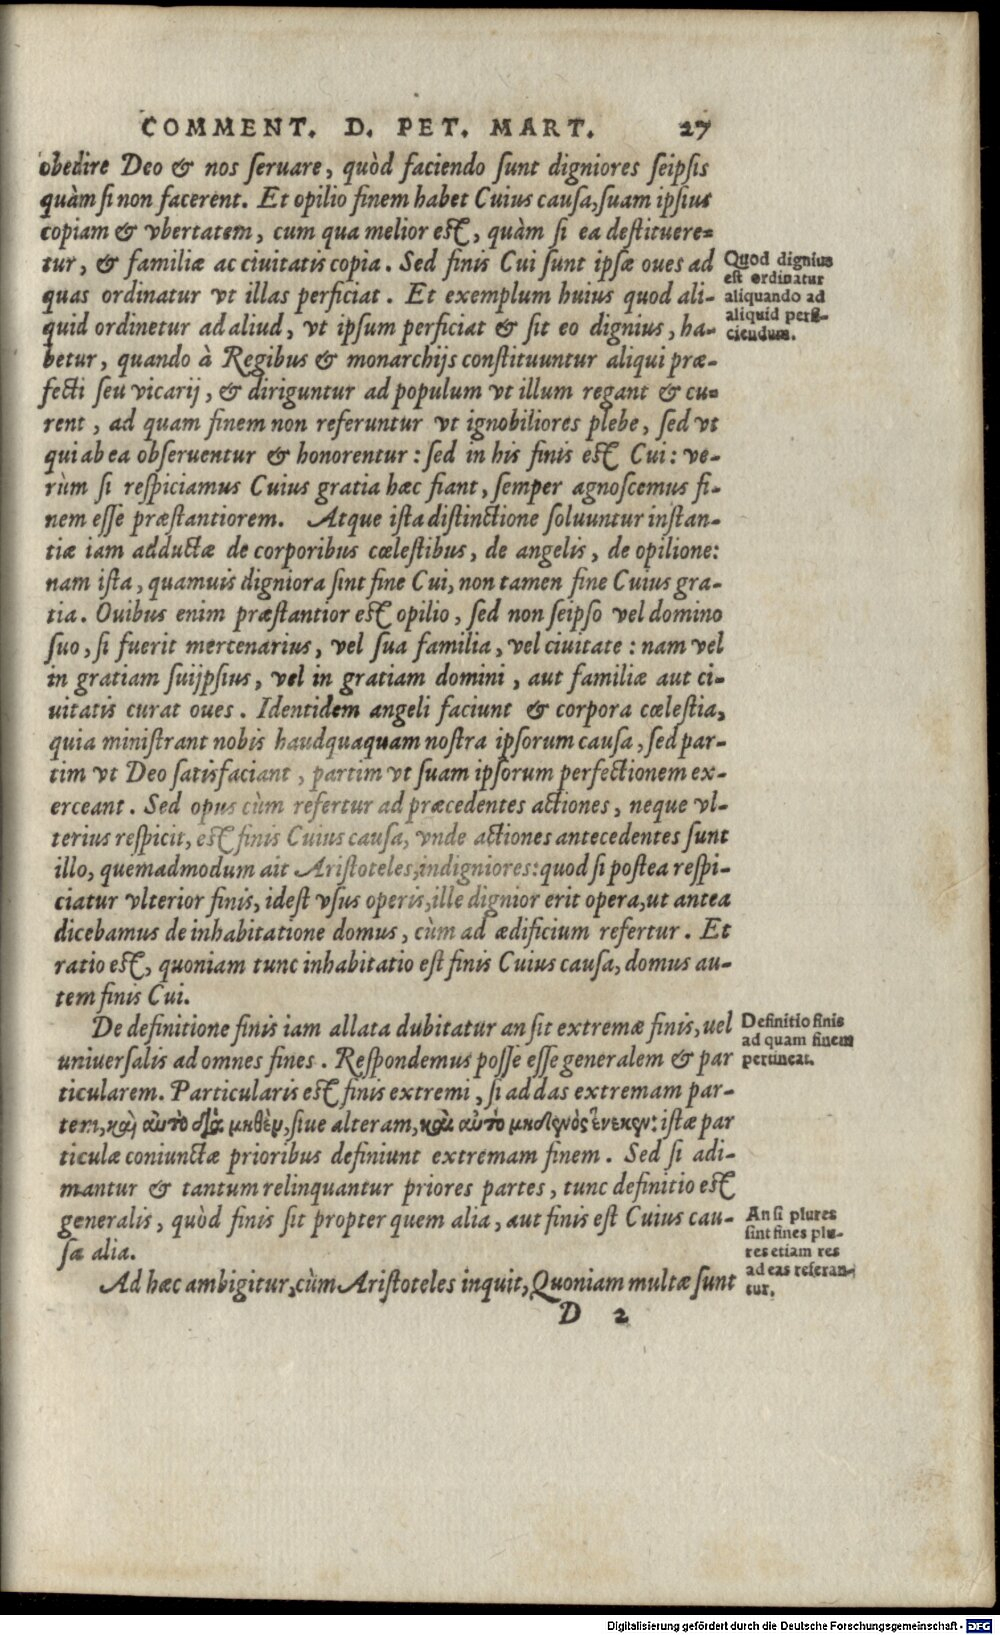 COMMENT. D. PET. MART. 27
obedire Deo & nos ſeruare, quòd faciendo ſunt digniores ſeipſis
quàm ſi non facerent. Et opilio finem habet Cuius cauſa, ſuam ipſius
copiam & vbertatem, cum qua melior eſt, quàm ſi ea deſtituere=
tur, & familiæ ac ciuitatis copia. Sed finis Cui ſunt ipſæ oues ad
quas ordinatur vt illas perficiat. Et exemplum huius quod ali-
quid ordinetur ad aliud, vt ipſum perficiat & ſit eo dignius, ha-
betur, quando à Regibus & monarchijs conſtituuntur aliqui præ-
fecti ſeu vicarij, & diriguntur ad populum vt illum regant & cu=
rent, ad quam finem non referuntur vt ignobiliores plebe, ſed vt
qui ab ea obſeruentur & honorentur: ſed in his finis eſt Cui: ve-
rùm ſi reſpiciamus Cuius gratia hæc fiant, ſemper agnoſcemus fi-
nem eſſe præſtantiorem. Atque iſta diſtinctione ſoluuntur inſtan-
tiæ iam adductæ de corporibus cœleſtibus, de angelis, de opilione:
nam iſta, quamuis digniora ſint fine Cui, non tamen fine Cuius gra-
tia. Ouibus enim præſtantior eſt opilio, ſed non ſeipſo vel domino
ſuo, ſi fuerit mercenarius, vel ſua familia, vel ciuitate: nam vel
in gratiam ſuijpſius, vel in gratiam domini, aut familiæ aut ci-
uitatis curat oues. Identidem angeli faciunt & corpora cœleſtia,
quia miniſtrant nobis haudquaquam noſtra ipſorum cauſa, ſed par-
tim vt Deo ſatisfaciant, partim vt ſuam ipſorum perfectionem ex-
erceant. Sed opus cùm refertur ad præcedentes actiones, neque vl-
terius reſpicit, eſt finis Cuius cauſa, vnde actiones antecedentes ſunt
illo, quemadmodum ait Ariſtoteles, indigniores: quod ſi poſtea reſpi-
ciatur vlterior finis, ideſt vſus operis, ille dignior erit opera, ut antea
dicebamus de inhabitatione domus, cùm ad ædificium refertur. Et
ratio eſt, quoniam tunc inhabitatio eſt finis Cuius cauſa, domus au-
tem finis Cui.
De definitione finis iam allata dubitatur an ſit extremæ finis, uel
uniuerſalis ad omnes fines. Reſpondemus poſſe eſſe generalem & par
ticularem. Particularis eſt finis extremi, ſi addas extremam par-
tem, καὶ αὐτὸ διὰ μηθὲν, ſiue alteram, καὶ αὐτὸ μηδενὸς ἕνεκεν: iſtæ par
ticulæ coniunctæ prioribus definiunt extremam finem. Sed ſi adi-
mantur & tantum relinquantur priores partes, tunc definitio eſt
generalis, quòd finis ſit propter quem alia, aut finis eſt Cuius cau-
ſa alia.
Ad hæc ambigitur, cùm Ariſtoteles inquit, Quoniam multæ ſunt
D 2
Quod dignius
eſt ordinatur
aliquando ad
aliquid perfi-
ciendum.
Definitio finis
ad quam finem
pertineat.
An ſi plures
ſint fines plu-
res etiam res
ad eas referan-
tur.
Digitalisierung gefördert durch die Deutsche Forschungsgemeinschaft - DFG